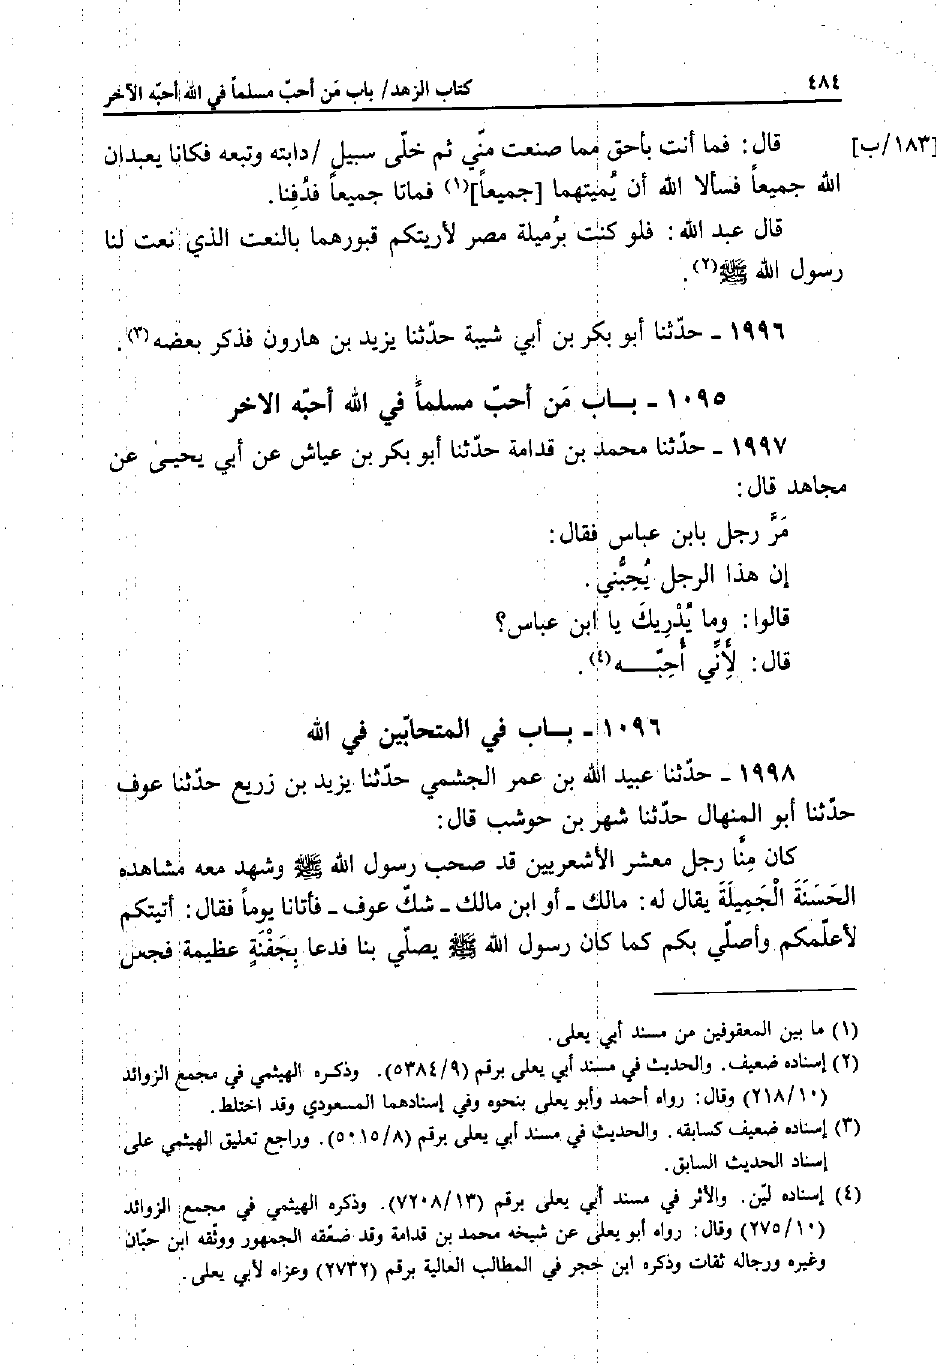 ٤٨٤ كتاب الزهد/ باب مَن أحبّ مسلماً في الله أحبّه الآخر
[١٨٣/ب] قال: فما أنت بأحق مما صنعت منّي ثم خلّى سبيل /دابته وتبعه فكانا يعبدان
الله جميعاً فسألا الله أن يُميتهما [جميعاً](١) فماتا جميعاً فدُفِنا.
قال عبد الله: فلو كنت برُميلة مصر لأريتكم قبورهما بالنعت الذي نعت لنا
رسول الله ﷺ(٢).
١٩٩٦ ـ حدّثنا أبو بكر بن أبي شيبة حدّثنا يزيد بن هارون فذكر بعضه(٣).
١٠٩٥ ـ بــاب مَن أحبّ مسلماً في الله أحبّه الاخر
١٩٩٧ ـ حدّثنا محمد بن قدامة حدّثنا أبو بكر بن عياش عن أبي يحيىٰ عن
مجاهد قال:
مَرَّ رجل بابن عباس فقال:
إن هذا الرجل يُحِبُّني.
قالوا: وما يُدْرِيكَ يا ابن عباس؟
قال: لَأِنِّي أُحِبّــــه(٤).
١٠٩٦ ـ بــاب في المتحابّين في الله
١٩٩٨ ـ حدّثنا عبيد الله بن عمر الجشمي حدّثنا يزيد بن زريع حدّثنا عوف
حدّثنا أبو المنهال حدّثنا شهر بن حوشب قال:
كان مِنَّا رجل معشر الأشعريين قد صحب رسول الله ﷺ وشهد معه مشاهده
الحَسَنَةَ الْجَمِيلَةَ يقال له: مالك ـ أو ابن مالك ـ شكّ عوف ـ فأتانا يوماً فقال: أتيتكم
لأعلّمكم وأصلّي بكم كما كان رسول الله ﷺ يصلّي بنا فدعا بِجَفْنَةٍ عظيمة فجعل
(١) ما بين المعقوفين من مسند أبي يعلى.
(٢) إسناده ضعيف. والحديث في مسند أبي يعلى برقم (٥٣٨٤/٩). وذكره الهيثمي في مجمع الزوائد
(٢١٨/١٠) وقال: رواه أحمد وأبو يعلى بنحوه وفي إسنادهما المسعودي وقد اختلط.
(٣) إسناده ضعيف كسابقه. والحديث في مسند أبي يعلى برقم (٥٠١٥/٨). وراجع تعليق الهيثمي على
إسناد الحديث السابق.
(٤) إسناده ليّن. والأثر في مسند أبي يعلى برقم (٧٢٠٨/١٣). وذكره الهيثمي في مجمع الزوائد
(٢٧٥/١٠) وقال: رواه أبو يعلى عن شيخه محمد بن قدامة وقد ضعّفه الجمهور ووثّقه ابن حبّان
وغيره ورجاله ثقات وذكره ابن حجر في المطالب العالية برقم (٢٧٣٢) وعزاه لأبي يعلى.